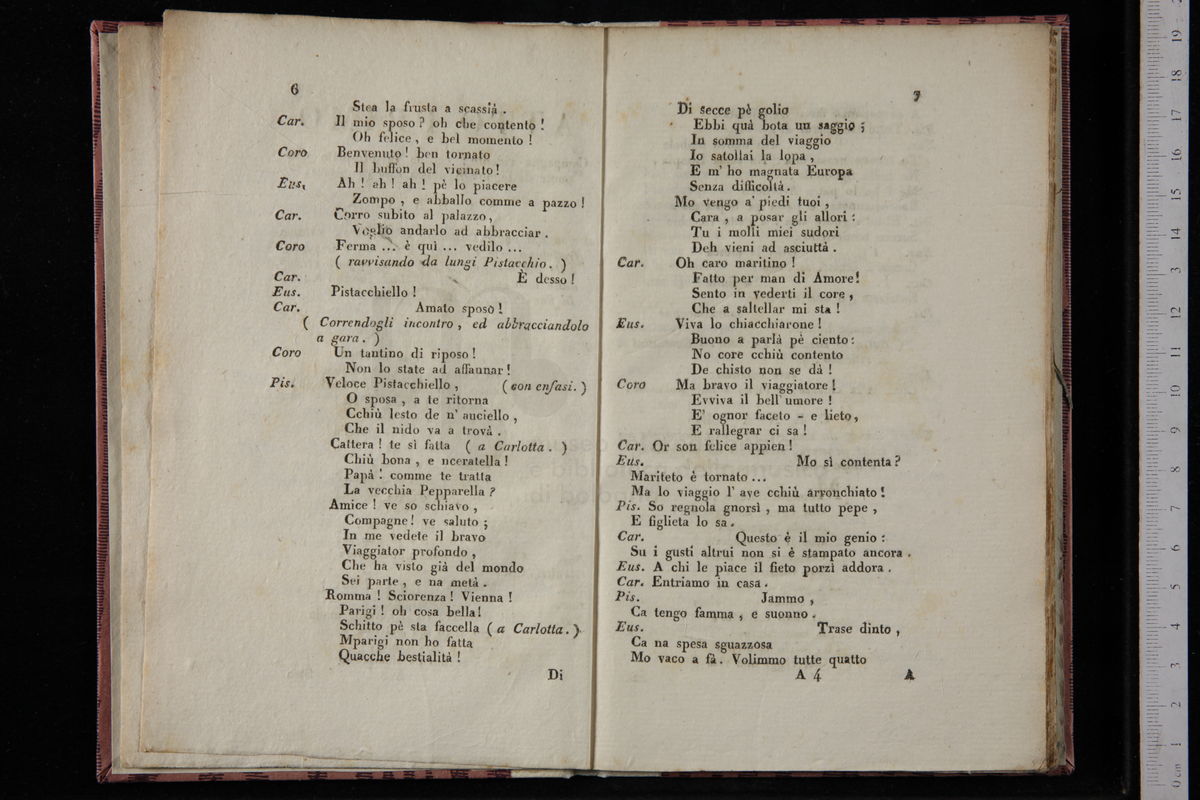 6
Stea la frusta a scassià .
Car. Il mio sposo ? oh che contento !
Oh felice , e bel momento !
Coro Benvenuto ! ben tornato
Il buffon del vicinato !
Eus. Ah ! ah ! ah ! pè lo piacere
Zompo , e abballo comme a pazzo !
Car. Corro subito al palazzo ,
Voglio andarlo ad abbracciar .
Coro Ferma ... è quì ... vedilo ...
( ravvisando da lungi Pistacchio . )
Car. È desso !
Eus. Pistacchiello !
Car. Amato sposo !
( Correndogli incontro , ed abbracciandolo
a gara . )
Coro Un tantino di riposo !
Non lo state ad affannar !
Pis. Veloce Pistacchiello , ( con enfasi . )
O sposa , a te ritorna
Cchiù lesto de n' auciello ,
Che il nido va a trovà .
Cattera ! te sì fatta ( a Carlotta . )
Chiù bona , e nceratella !
Papà ! comme te tratta
La vecchia Pepparella ?
Amice ! ve so schiavo ,
Compagne ! ve saluto ;
In me vedete il bravo
Viaggiator profondo ,
Che ha visto già del mondo
Sei parte , e na metà .
Romma ! Sciorenza ! Vienna !
Parigi ! oh cosa bella !
Schitto pè sta faccella ( a Carlotta . )
Mparigi non ho fatta
Quacche bestialità !
Di
7
Di secce pè golio
Ebbi quà bota un saggio ;
In somma del viaggio
Io satollai la lopa ,
E m' ho magnata Europa
Senza difficoltà .
Mo vengo a' piedi tuoi ,
Cara , a posar gli allori :
Tu i molli miei sudori
Deh vieni ad asciuttà .
Car. Oh caro maritino !
Fatto per man di Amore !
Sento in vederti il core ,
Che a saltellar mi sta !
Eus. Viva lo chiacchiarone !
Buono a parlà pè ciento :
No core cchiù contento
De chisto non se dà !
Coro Ma bravo il viaggiatore !
Evviva il bell' umore !
E' ognor faceto - e lieto ,
E rallegrar ci sa !
Car. Or son felice appien !
Eus. Mo sì contenta ?
Mariteto è tornato ...
Ma lo viaggio l' ave cchiù arronchiato !
Pis. So regnola gnorsì , ma tutto pepe ,
E figlieta lo sa .
Car. Questo è il mio genio :
Su i gusti altrui non si è stampato ancora .
Eus. A chi le piace il fieto porzì addora .
Car. Entriamo in casa .
Pis. Jammo ,
Ca tengo famma , e suonno .
Eus. Trase dinto ,
Ca na spesa sguazzosa
Mo vaco a fà . Volimmo tutte quatto
A 4 A